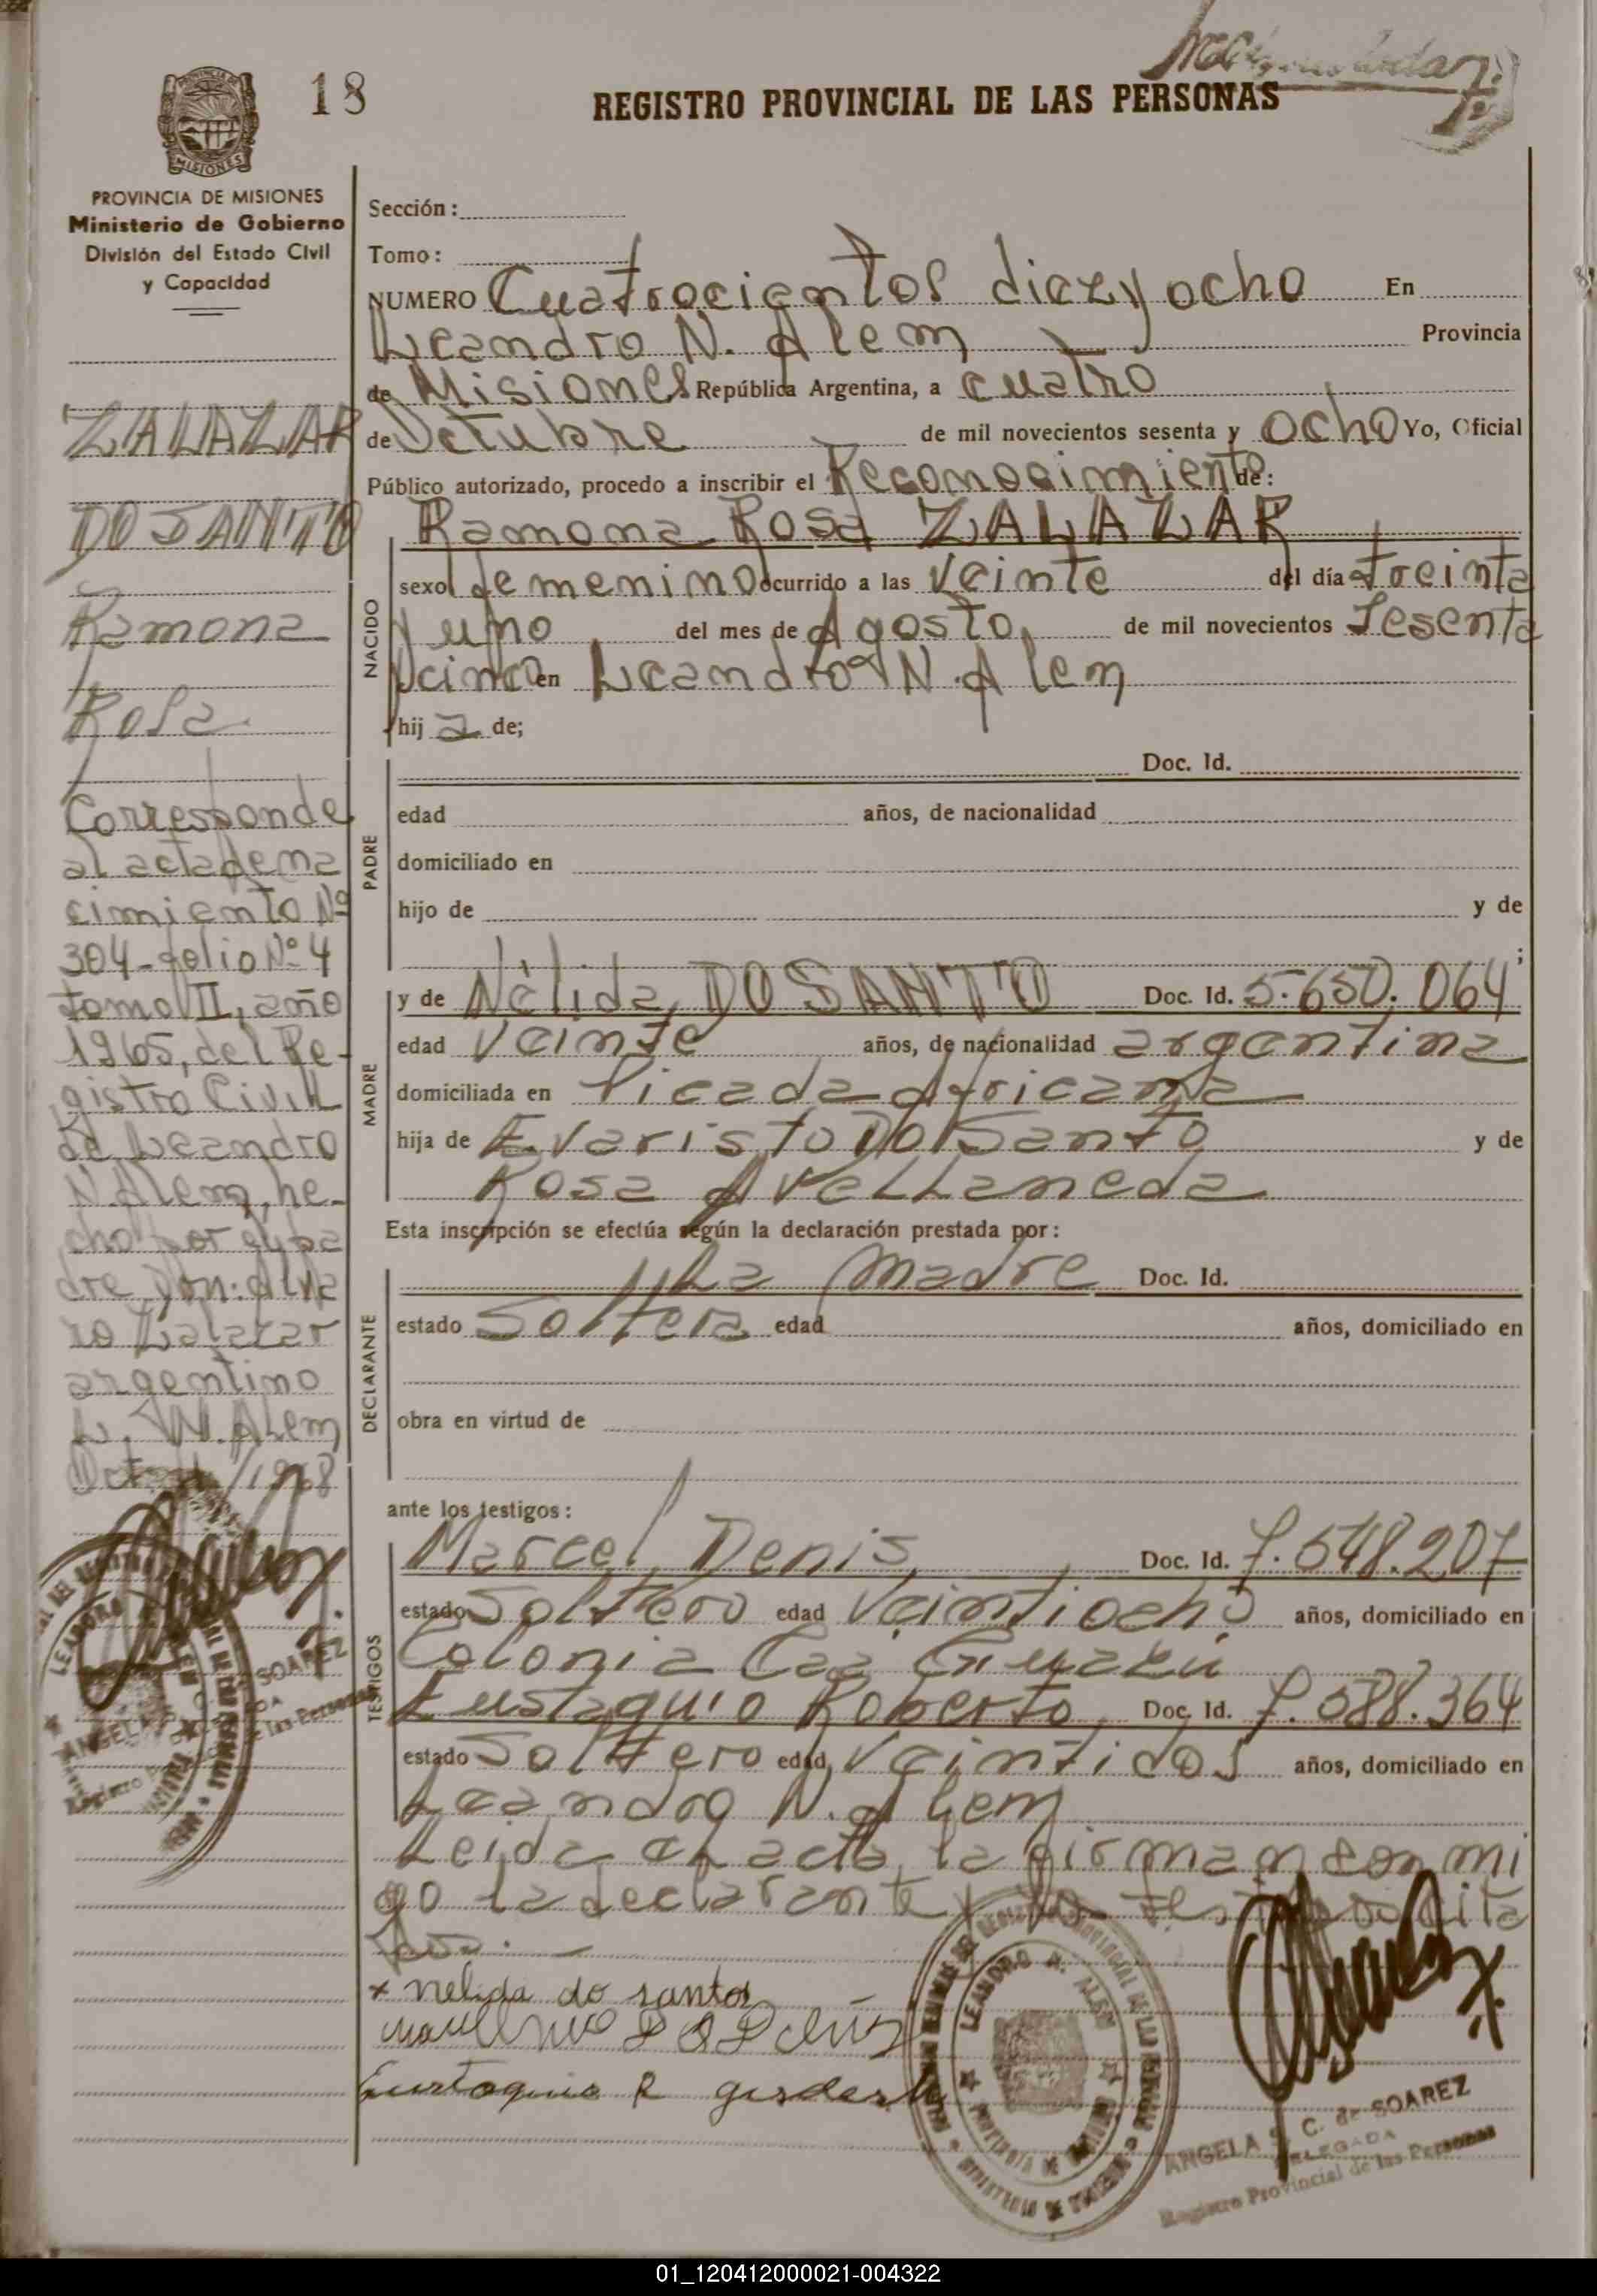 18
REGISTRO PROVINCIAL DE LAS PERSONAS
PROVINCIA DE MISIONES
Ministerio de Gobierno
División del Estado Civil
y Capacidad
ZALAZAR
DO SANTO
Ramona
Rosa
Corresponde
al acta de na
cimiento Nº
304-folio Nº 4
tomo II, año
1965, del Re-
gistro Civil
de Leandro
N. Alem, he-
cho por el pa
dre Don:
Zalazar
argentino
L. N. Alem
Oct. /1968
Sección:
Tomo:
NUMERO Cuatrocientos diez y ocho En
Leandro N. Alem Provincia
de Misiones República Argentina, a cuatro
de Octubre de mil novecientos sesenta y ocho Yo, Oficial
Público autorizado, procedo a inscribir el Reconocimiento de:
Ramona Rosa ZALAZAR
NACIDO
sexo femenino ocurrido a las veinte del día treinta
y uno del mes de Agosto, de mil novecientos sesenta
y cinco en Leandro N. Alem
hija de;
PADRE
Doc. Id.
edad años, de nacionalidad
domiciliado en
hijo de y de
;
MADRE
y de Nélida, DO SANTO Doc. Id. 5.650.064
edad veinte años, de nacionalidad argentina
domiciliada en Picada Africana
hija de Evaristo Do Santo y de
Rosa Avellaneda
Esta inscripción se efectúa según la declaración prestada por:
DECLARANTE
La madre Doc. Id.
estado Soltera edad años, domiciliado en
obra en virtud de
ante los testigos:
TESTIGOS
Marcel, Denis, Doc. Id. 7.548.207
estado Soltero edad Veintiocho años, domiciliado en
Colonia Caa Guazu
Eustaquio Roberto, Doc. Id. 7.588.364
estado Soltero edad veintidos años, domiciliado en
Leandro N. Alem
Leida el acta, la firman conmi
go la declarante y los testigos cita
dos.-
x nelida do santos
Eustaquio R
LEANDRO N. ALEM
ANGELA S. C. de SOAREZ
DELEGADA
Registro Provincial de las Personas
01_120412000021-004322